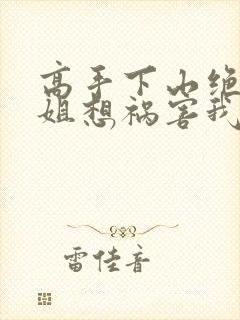 高手下山绝
姐想祸害我
雷佳音